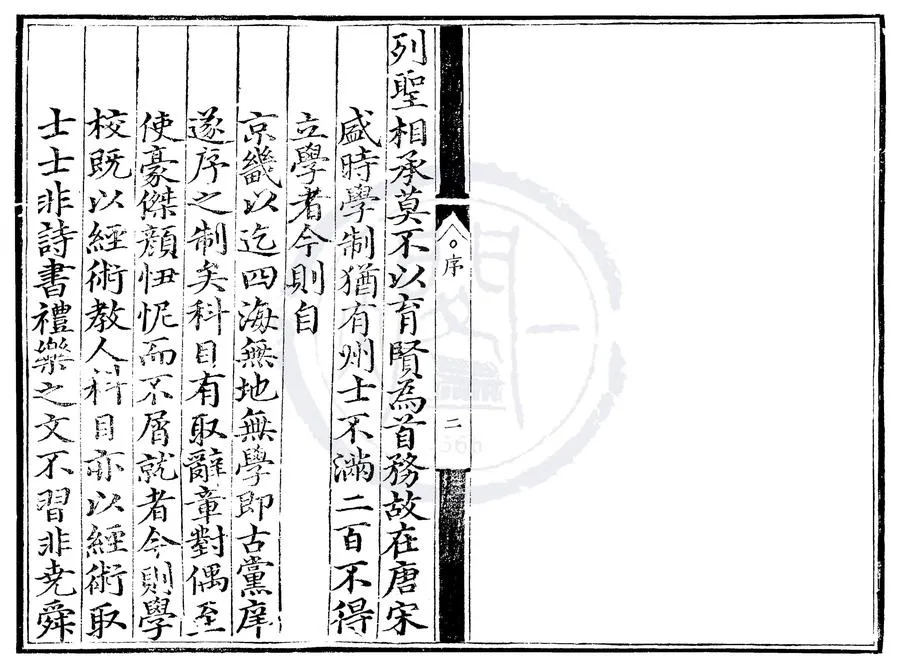 序
二
列聖相承莫不以育賢為首務故在唐宋
盛時學制猶有州士不滿二百不得
立學者今則自
京畿以迄四海無地無學即古黨庠
遂序之制矣科目有取辭章對偶至
使豪傑顏忸怩而不屑就者今則學
校既以經術教人科目亦以經術取
士士非詩書禮樂之文不習非堯舜